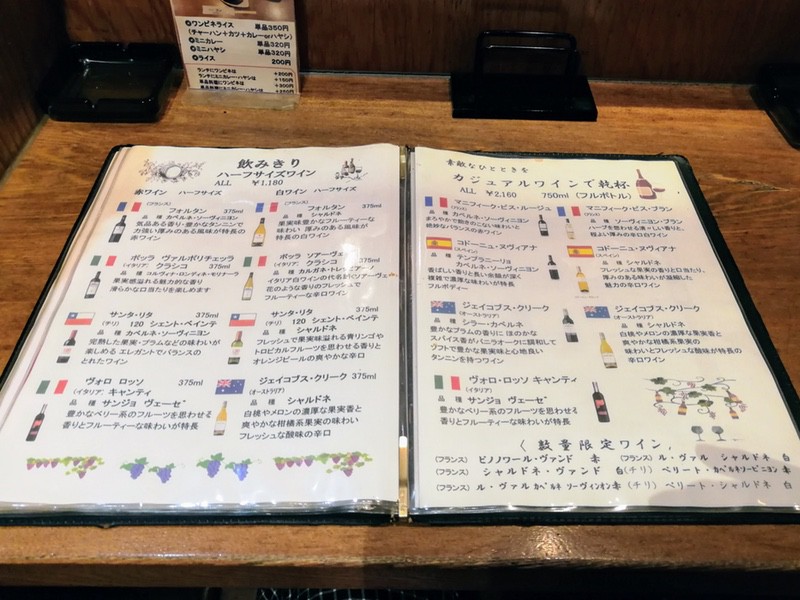 ●ワンピネライス 単品350円
(チャーハン+カツ+カレーorハヤシ)
●ミニカレー 単品320円
●ミニハヤシ 単品320円
●ライス 200円
ランチにワンピネは +200円
ランチにミニカレー・ハヤシは +150円
単品料理にワンピネは +300円
飲みきり
ハーフサイズワイン
ALL ¥1.180
赤ワイン ハーフサイズ
フォルタン 375ml
品 種 カベルネ・ソーヴィニヨン
気品ある香り・豊かなタンニンで
力強い厚みのある風味が特長の
赤ワイン
ボッラ ヴァルポリチェッラ
(イタリア) クラシコ 375ml
品 種 コルヴィナ・ロンディネ・モリナーラ
果実感溢れる魅力的な香り
滑らかな口当たりを楽しめます
サンタ・リタ 375ml
(チリ) 120 シェント・ベインテ
品 種 カベルネ・ソーヴィニヨン
完熟した果実・プラムなどの味わいが
楽しめる エレガントでバランスの
とれたワイン
ヴォロ ロッソ 375ml
(イタリア) キャンティ
品 種 サンジョ ヴェーゼ
豊かなベリー系のフルーツを思わせる
香りとフルーティーな味わいが特長
白ワイン ハーフサイズ
フォルタン 375ml
品 種 シャルドネ
果実味豊かなフルーティーな
味わい 厚みのある風味が
特長の白ワイン
ボッラ ソアーヴェ
(イタリア) クラシコ 375ml
品 種 カルガネ・トレッビアーノ
イタリア白ワインの代名詞「ソアーヴェ」
花のような香りのフレッシュで
フルーティーな辛口ワイン
サンタ・リタ 375ml
(チリ) 120 シェント・ベインテ
品 種 シャルドネ
フレッシュで果実味溢れる青リンゴや
トロピカルフルーツを思わせる香りと
オレンジピールの爽やかな辛口
ジェイコブス・クリーク 375ml
(オーストラリア)
品 種 シャルドネ
白桃やメロンの濃厚な果実香と
爽やかな柑橘系果実の味わい
フレッシュな酸味の辛口
素敵なひとときを
カジュアルワインで乾杯
ALL ¥2.160 750ml (フルボトル)
マニフィーク・ビス・ルージュ
(フランス)
品 種 カベルネ・ソーヴィニヨン
まろやかで飽きのこない味わい
絶妙なバランスの赤ワイン
コドーニュ・ヌヴィアナ
(スペイン)
品 種 テンプラニーリョ
カベルネ・ソーヴィニヨン
香ばしい香りと黒い果実が深く
複雑で濃密な味わいと余韻が特長
フルボディー
ジェイコブス・クリーク
(オーストラリア)
品 種 シラー・カベルネ
豊かなプラムの香りに ほのかな
スパイス香がバニラオークに調和して
ソフトで豊かな果実味と心地良い
タンニンを持つワイン
ヴォロ・ロッソ キャンティ
(イタリア)
品 種 サンジョ ヴェーゼ
豊かなベリー系のフルーツを思わせる
香りとフルーティーな味わいが特長
マニフィーク・ビス・ブラン
(フランス)
品 種 ソーヴィニヨン・ブラン
ハーブを思わせる清々しい香りと、
程よい厚みの辛口白ワイン
コドーニュ・ヌヴィアナ
(スペイン)
品 種 シャルドネ
フレッシュな果実の香りと口当たり、
厚みのあるまろやかな味わいが
魅力の辛口白ワイン
ジェイコブス・クリーク
(オーストラリア)
品 種 シャルドネ
白桃やメロンの濃厚な果実香と
爽やかな柑橘系果実の
味わいとフレッシュな酸味が特長の
辛口ワイン
〈 数量限定ワイン 〉
(フランス) ピノノワール・ヴァンド 赤 (フランス) ル・ヴァル シャルドネ 白
(フランス) シャルドネ・ヴァンド 白 (チリ) ペリート・カベルネソービニヨン 赤
(フランス) ル・ヴァル カベルネ ソーヴィンオン 赤 (チリ) ペリート・シャルドネ 白